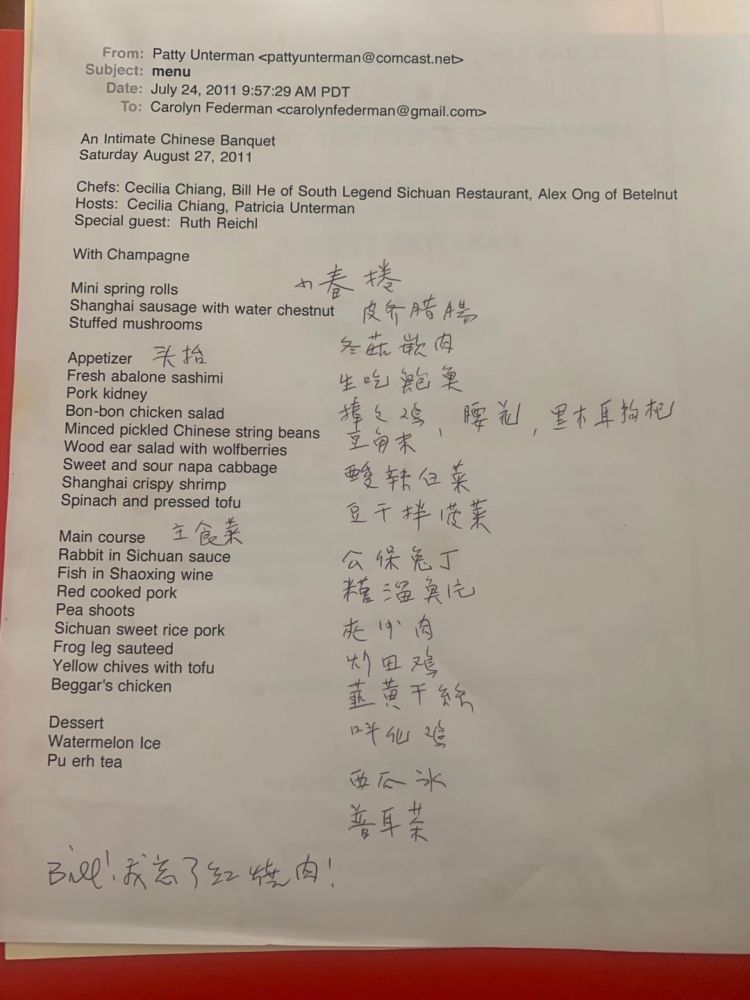 From: Patty Unterman <pattyunterman@comcast.net>
Subject: menu
Date: July 24, 2011 9:57:29 AM PDT
To: Carolyn Federman <carolynfederman@gmail.com>
An Intimate Chinese Banquet
Saturday August 27, 2011
Chefs: Cecilia Chiang, Bill He of South Legend Sichuan Restaurant, Alex Ong of Betelnut
Hosts: Cecilia Chiang, Patricia Unterman
Special guest: Ruth Reichl
With Champagne
Mini spring rolls 小春捲
Shanghai sausage with water chestnut 腊腸
Stuffed mushrooms 冬菇 肉
Appetizer 头抬
Fresh abalone sashimi 生吃鮑魚
Pork kidney
Bon-bon chicken salad 棒之鸡, 腰花, 黑木耳枸杞
Minced pickled Chinese string beans 豆角末
Wood ear salad with wolfberries
Sweet and sour napa cabbage 酸辣白菜
Shanghai crispy shrimp
Spinach and pressed tofu 豆干拌菠菜
Main course 主食菜
Rabbit in Sichuan sauce 公保兔丁
Fish in Shaoxing wine 糟溜魚片
Red cooked pork
Pea shoots
Sichuan sweet rice pork 夾沙肉
Frog leg sauteed 炒田鸡
Yellow chives with tofu 韮黄干絲
Beggar's chicken 叫化鸡
Dessert
Watermelon Ice 西瓜冰
Pu erh tea 普耳茶
Bill! 我忘了红燒肉!